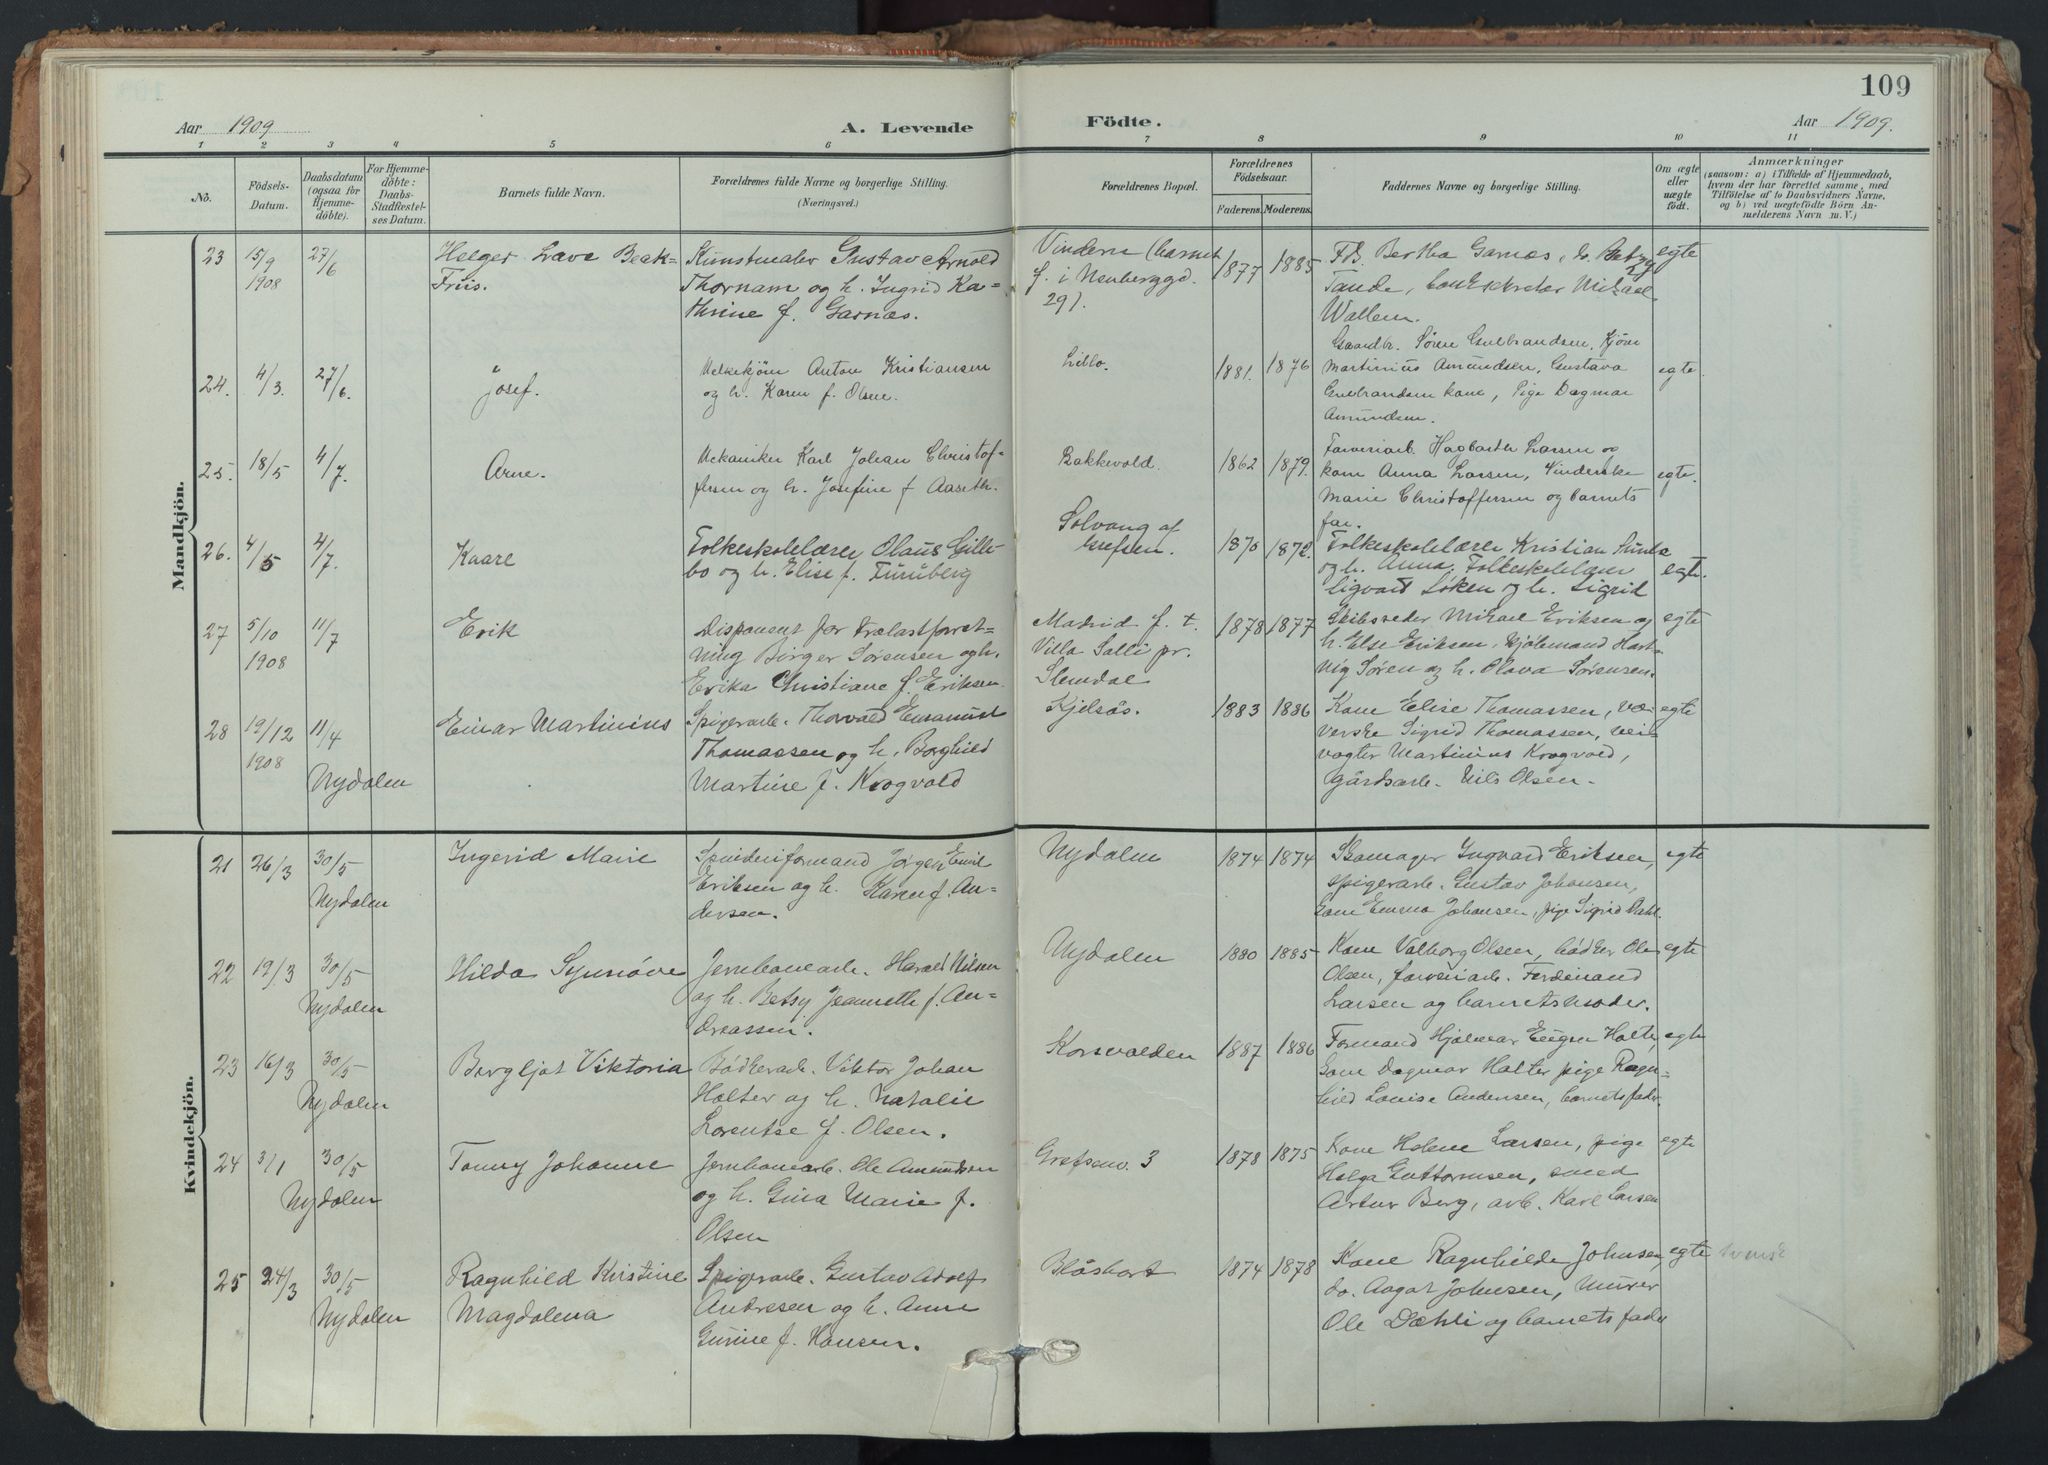 109
Aar 1909
A. Levende Födte.
Aar 1909.
1 2 3 4 5 6 7 8 9 10 11
No.
Födsels-
Datum.
Daabsdatum
(ogsaa for
Hjemme-
döbte).
For Hjemme-
döbte:
Daabs-
Stadfæstel-
ses Datum.
Barnets fulde Navn.
Forældrenes fulde Navne og borgerlige Stilling.
(Næringsvei.)
Forældrenes Bopæl.
Forældrenes
Födselsaar.
Faderens. Moderens.
Faddernes Navne og borgerlige Stilling.
Om ægte
eller
uægte
födt.
Anmærkninger
(saasom: a) i Tilfælde af Hjemmedaab,
hvem der har forrettet samme, med
Tilföielse af to Daabsvidners Navne,
og b) ved uægtefödte Börn An-
melderens Navn m. V.)
Mandkjön.
23 15/9 1908 27/6
Helger Lave Beck-
Friis.
Kunstmaler Gustav Arnold
Thornam og h. Ingrid Ka-
thrine f. Garnæs.
Vindern (barnet
f. i Neuberggd.
29).
1877 1885
Frk. Bertha Garnæs, fr. Betzy
Tande, Mikael
Wallem.
egte
24. 4/3. 27/6.
Josef.
Melkekjörer Anton Kristiansen
og h. Karen f. Olsen.
Lillo.
1881. 1876
Gaardbr. Sören Gulbrandsen, Kjöre
Martinius Amundsen, Gustava
Gulbrandsen kone, Pige Dagmar
Amundsen.
egte.
25. 18/5 4/7.
Arne.
Mekaniker Karl Johan Christof-
fersen og h. Josefine f Aaseth.
Bakkevold.
1862 1879.
Farveriarb. Hagbarth Larsen og
kone Anna Larsen,
Marie Christoffersen og barnets
far.
egte.
26. 4/5 4/7.
Kaare
Folkeskolelærer Olaus Gille-
bo og h. Elise f. Furuberg
Solvang af
Grefsen.
1870 1872.
Folkeskolelærer Kristian
og h. Anna, Folkeskolelærer
Sigvard Löken og h. Sigrid
egte.
27 5/10 1908 11/7
Erik
Disponent for Trælastforret-
ning Birger Sörensen og h.
Erika Christiane f. Eriksen
Madrid f. t.
Villa Solli pr.
Slemdal
1878 1877
Skibsreder Mikael Eriksen og
h. Else Eriksen, kjöbmand Hart-
vig Sören og h. Olava Sörensen.
egte
28 19/12 1908 11/4
Nydalen
Einar Martinius
Spigerarb. Thorvald Emanuel
Thomassen og h. Borghild
Martine f. Krogvold
Kjelsås.
1883 1886
Kone Elise Thomassen, væ-
verske Sigrid Thomassen, vei-
vogter Martinius Krogvold,
gårdsarb. Nils Olsen.
egte
Kvindekjön.
21 26/3 30/5
Nydalen
Ingerid Marie
Spinderiformand Jörgen Emil
Eriksen og h. Karen f. An-
dersen.
Nydalen
1874 1874
Skomager Ingvard Eriksen,
spigerarb. Gustav Johansen,
kone Emma Johansen, pige Sigrid Dahl.
egte
22 19/3 30/5
Nydalen
Hilda Synnöve
Jernbanearb. Harald Nilsen
og h. Betsy Jeanette f. An-
dreassen.
Nydalen
1880 1885
Kone Valborg Olsen, bödker Ole
Olsen, farveriarb. Ferdinand
Larsen og barnets moder.
egte
23 16/3 30/5
Nydalen
Bergljot Viktoria
Bödkerarb. Viktor Johan
Holter og h. Natalie
Lorentse f. Olsen.
Korsvolden
1887 1886
Formand Hjalmar Eugen Holter,
kone Dagmar Holter pige Ragn-
hild Louise Andersen, barnets fader.
egte
24 3/1 30/5
Nydalen
Tonny Johanne
Jernbanearb. Ole Amundsen
og h. Gina Marie f.
Olsen
Grefsenv. 3
1878 1875
Kone Helene Larsen, pige
Helga Guttormsen, smed
Artur Berg, arb. Karl Larsen
egte
25 24/3 30/5
Nydalen
Ragnhild Kristine
Magdalena
Spigerarb. Gustav Adolf
Andresen og h. Anne
Gurine f. Hansen.
Blåsbort
1874 1878
Kone Ragnhilde Johnsen,
do. Aagot Johnsen, Murer
Ole Dæhli og barnets fader
egte